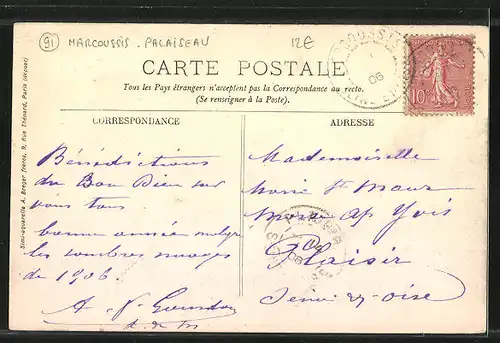 91 MARCOUSSIS. PALAISEAU 12€
CARTE POSTALE
Tous les Pays étrangers n'acceptent pas la Correspondance au recto.
(Se renseigner à la Poste).
CORRESPONDANCE
Bénédictions
du Bon Dieu sur
vous tous
bonne année malgré
les sombres nuages
de 1906
A. F. Gourdon
ADRESSE
Mademoiselle
Marie St Maur
Plaisir
Seine-et-Oise
10
06
Simi-aquarelle A. Breger frères, 9, Rue Thénard, Paris (déposé)